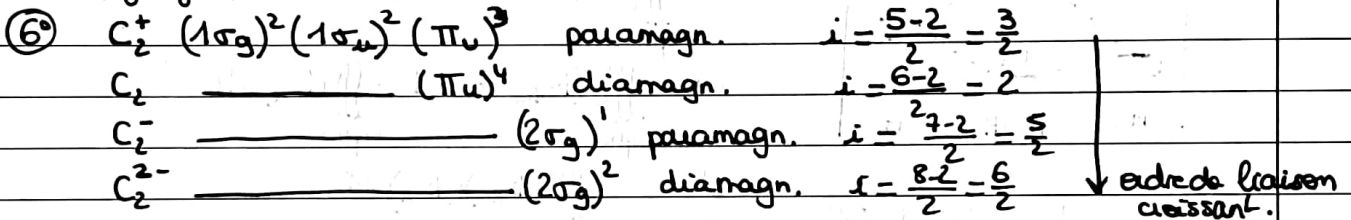 6° C₂⁺ (1σg)² (1σu)² (πu)³ paramagn. i = 5-2/2 = 3/2
C₂ ——— (πu)⁴ diamagn. i = 6-2/2 = 2
C₂⁻ ——— (2σg)¹ paramagn. i = 7-2/2 = 5/2
C₂²⁻ ——— (2σg)² diamagn. i = 8-2/2 = 6/2 ordre de liaison
croissant.